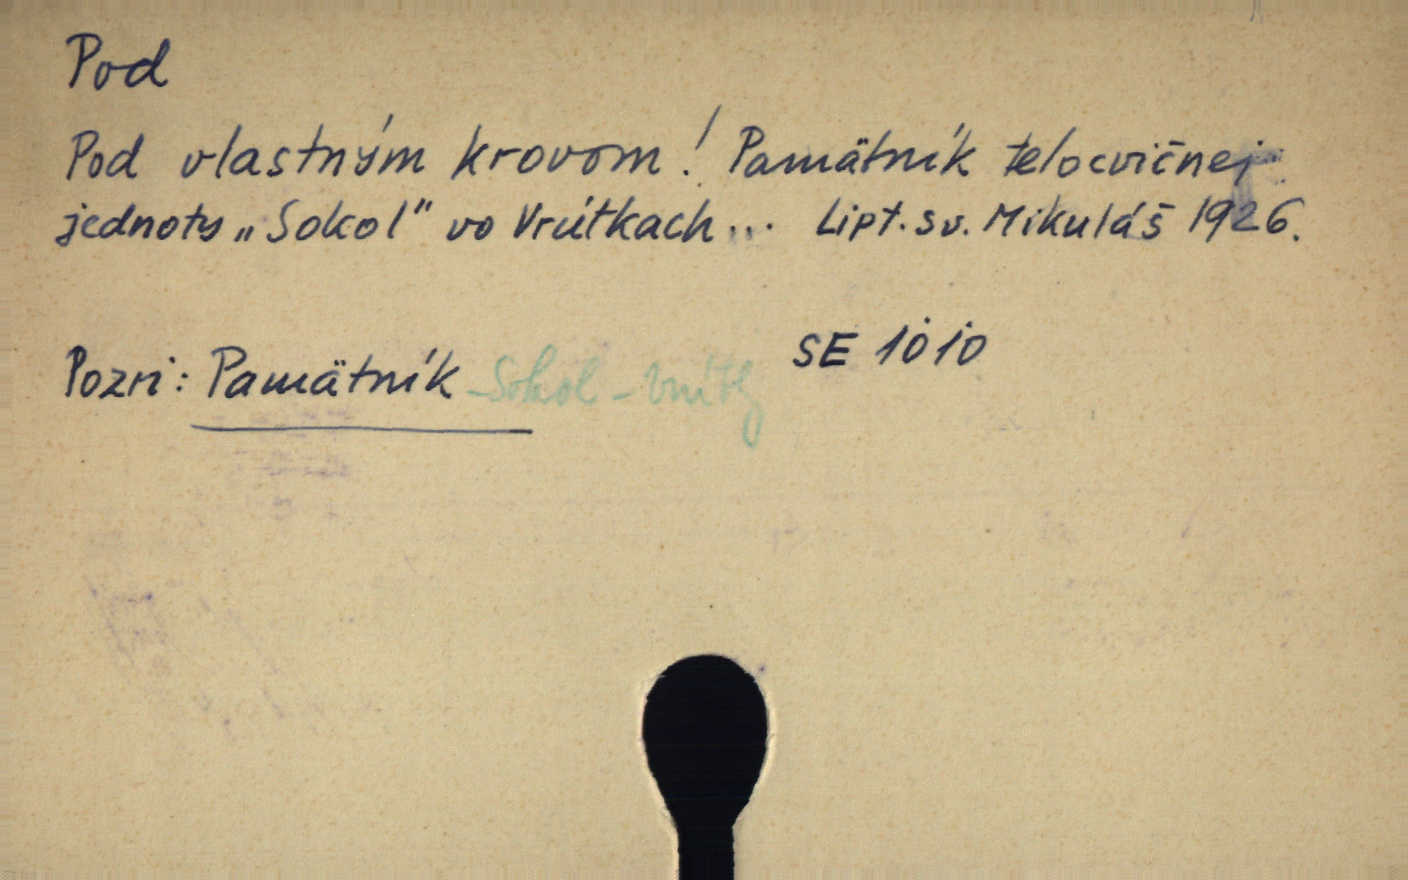 Pod
Pod vlastným krovom! Pamätník telocvičnej
jednoty „Sokol" vo Vrútkach... Lipt. sv. Mikuláš 1926.
SE 1010
Pozri: Pamätník - Sokol -